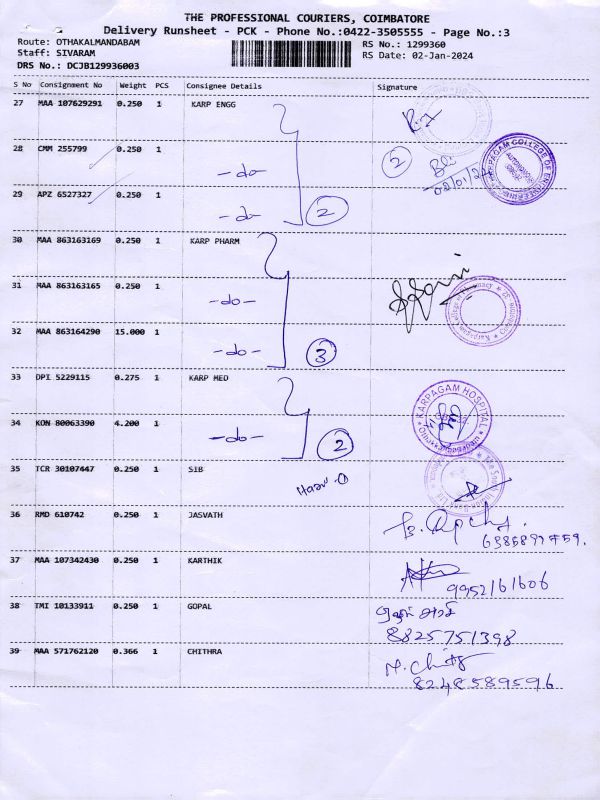 THE PROFESSIONAL COURIERS, COIMBATORE
Delivery Runsheet - PCK - Phone No.:0422-3505555 - Page No.:3
Route: OTHAKALMANDABAM
RS No.: 1299360
Staff: SIVARAM
RS Date: 02-Jan-2024
DRS No.: DCJB129936003
S No Consignment No Weight PCS Consignee Details Signature
27 MAA 107629291 0.250 1 KARP ENGG
28 CMM 255799 0.250 1
-do- 2
02/01/24
KARPAGAM COLLEGE OF ENGINEERING
29 APZ 6527327 0.250 1
-do- 2
30 MAA 863163169 0.250 1 KARP PHARM
31 MAA 863163165 0.250 1
-do-
Karpagam College of Pharmacy
32 MAA 863164290 15.000 1
-do- 3
33 DPI 5229115 0.275 1 KARP MED
KARPAGAM HOSPITAL
34 KON 80063390 4.200 1
-do- 2
35 TCR 30107447 0.250 1 SIB
The South Indian Bank Ltd.
36 RMD 610742 0.250 1 JASVATH
37 MAA 107342430 0.250 1 KARTHIK
9952161606
38 TMI 10133911 0.250 1 GOPAL
8825751398
39 MAA 571762120 0.366 1 CHITHRA
8248589596